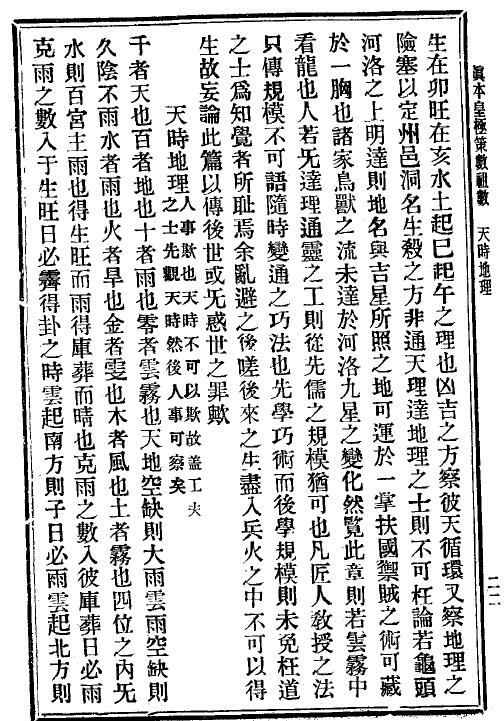 真本皇極策數祖數　天時地理
二二
生在卯旺在亥水土起巳起午之理也凶吉之方察彼天循環又察地理之
險塞以定州邑洞名生殺之方非通天理達地理之士則不可枉論若龜頭
河洛之上明達則地名與吉星所照之地可運於一掌扶國禦賊之術可藏
於一胸也諸家鳥獸之流未達於河洛九星之變化然覧此章則若雲霧中
看龍也人若旡達理通靈之工則從先儒之規模猶可也凡匠人敎授之法
只傳規模不可語隨時變通之巧法也先學巧術而後學規模則未免枉道
之士爲知覺者所耻焉余亂避之後嗟後來之生盡入兵火之中不可以得
生故妄論此篇以傳後世或旡惑世之罪歟
天時地理人事欺也天時不可以欺故盖工夫之士先觀天時然後人事可察矣
千者天也百者地也十者雨也零者雲霧也天地空缺則大雨雲雨空缺則
久陰不雨水者雨也火者旱也金者雯也木者風也土者霧也四位之內旡
水則百宮主雨也得生旺而雨得庫葬而晴也克雨之數入彼庫葬日必雨
克雨之數入于生旺日必霽得卦之時雲起南方則子日必雨雲起北方則